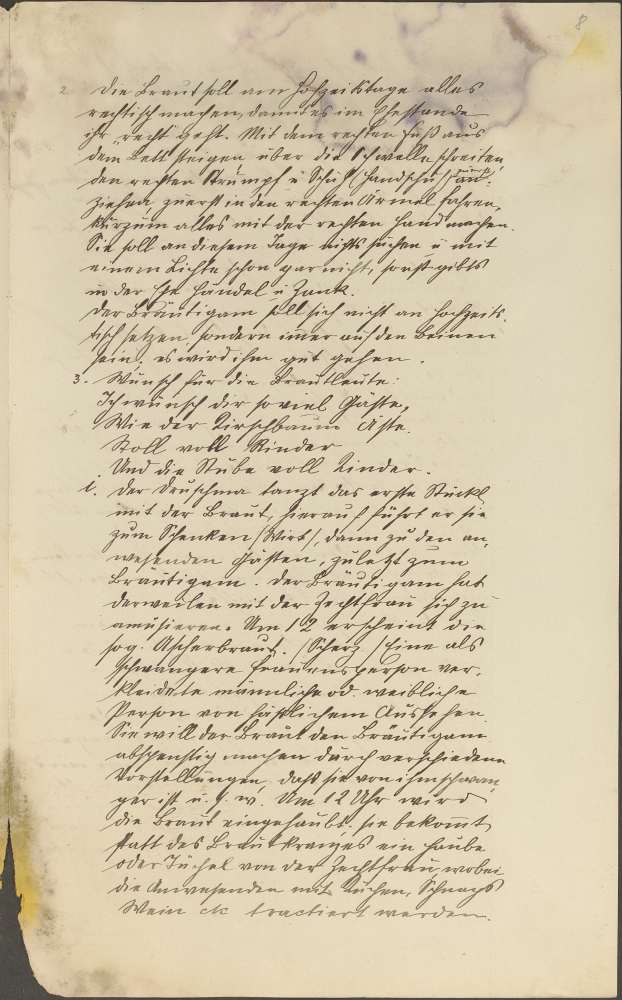 8
2. Die Braut soll am Hochzeitstage alles
rechtisch machen, damit es im Ehestande
ihr "recht geht. Mit dem rechten Fuß aus
dem Bett steigen, über die Schwelle schreiten,
den rechten Strumpf u Schuh (Handschuh) zuerst an-
ziehen, zuerst in den rechten Ärmel fahren,
kurzum alles mit der rechten Hand machen.
Sie soll an diesem Tage nichts suchen u mit
einem Lichte schon gar nicht, sonst gibts
in der Ehe Händel u Zank.
Der Bräutigam soll sich nicht an Hochzeits-
tisch setzen, sondern im̅er auf den Beinen
sein, es wird ihm gut gehen.
3. Wunsch für die Brautleute:
Ich wünsch dir soviel Gäste,
Wie der Kirschbaum Äste.
Stall voll Rinder
Und die Stube voll Kinder.
Der Druschma tanzt das erste Stückl
mit der Braut, hierauf führt er sie
zum Schenken (Wirt), dann zu den an-
wesenden Gästen, zuletzt zum
Bräutigam. Der Bräutigam hat
derweilen mit der Zechtfrau sich zu
amüsieren. Um 12 erscheint die
sog. Ascherbraut. (Scherz) Eine als
schwangere Frauensperson ver-
kleidete männliche od. weibliche
Person von häßlichem Aussehen.
Sie will der Braut den Bräutigam
abspenstig machen durch verschiedene
Vorstellungen, daß sie von ihm schwan-
ger ist u. s. w. Um 12 Uhr wird
die Braut eingehaubt, sie bekom̅t
statt des Brautkranzes ein Haube
oder Tüchel von der Zechtfrau, wobei
die Anwesenden mit Kuchen, Schnaps
Wein etc tractiert werden.